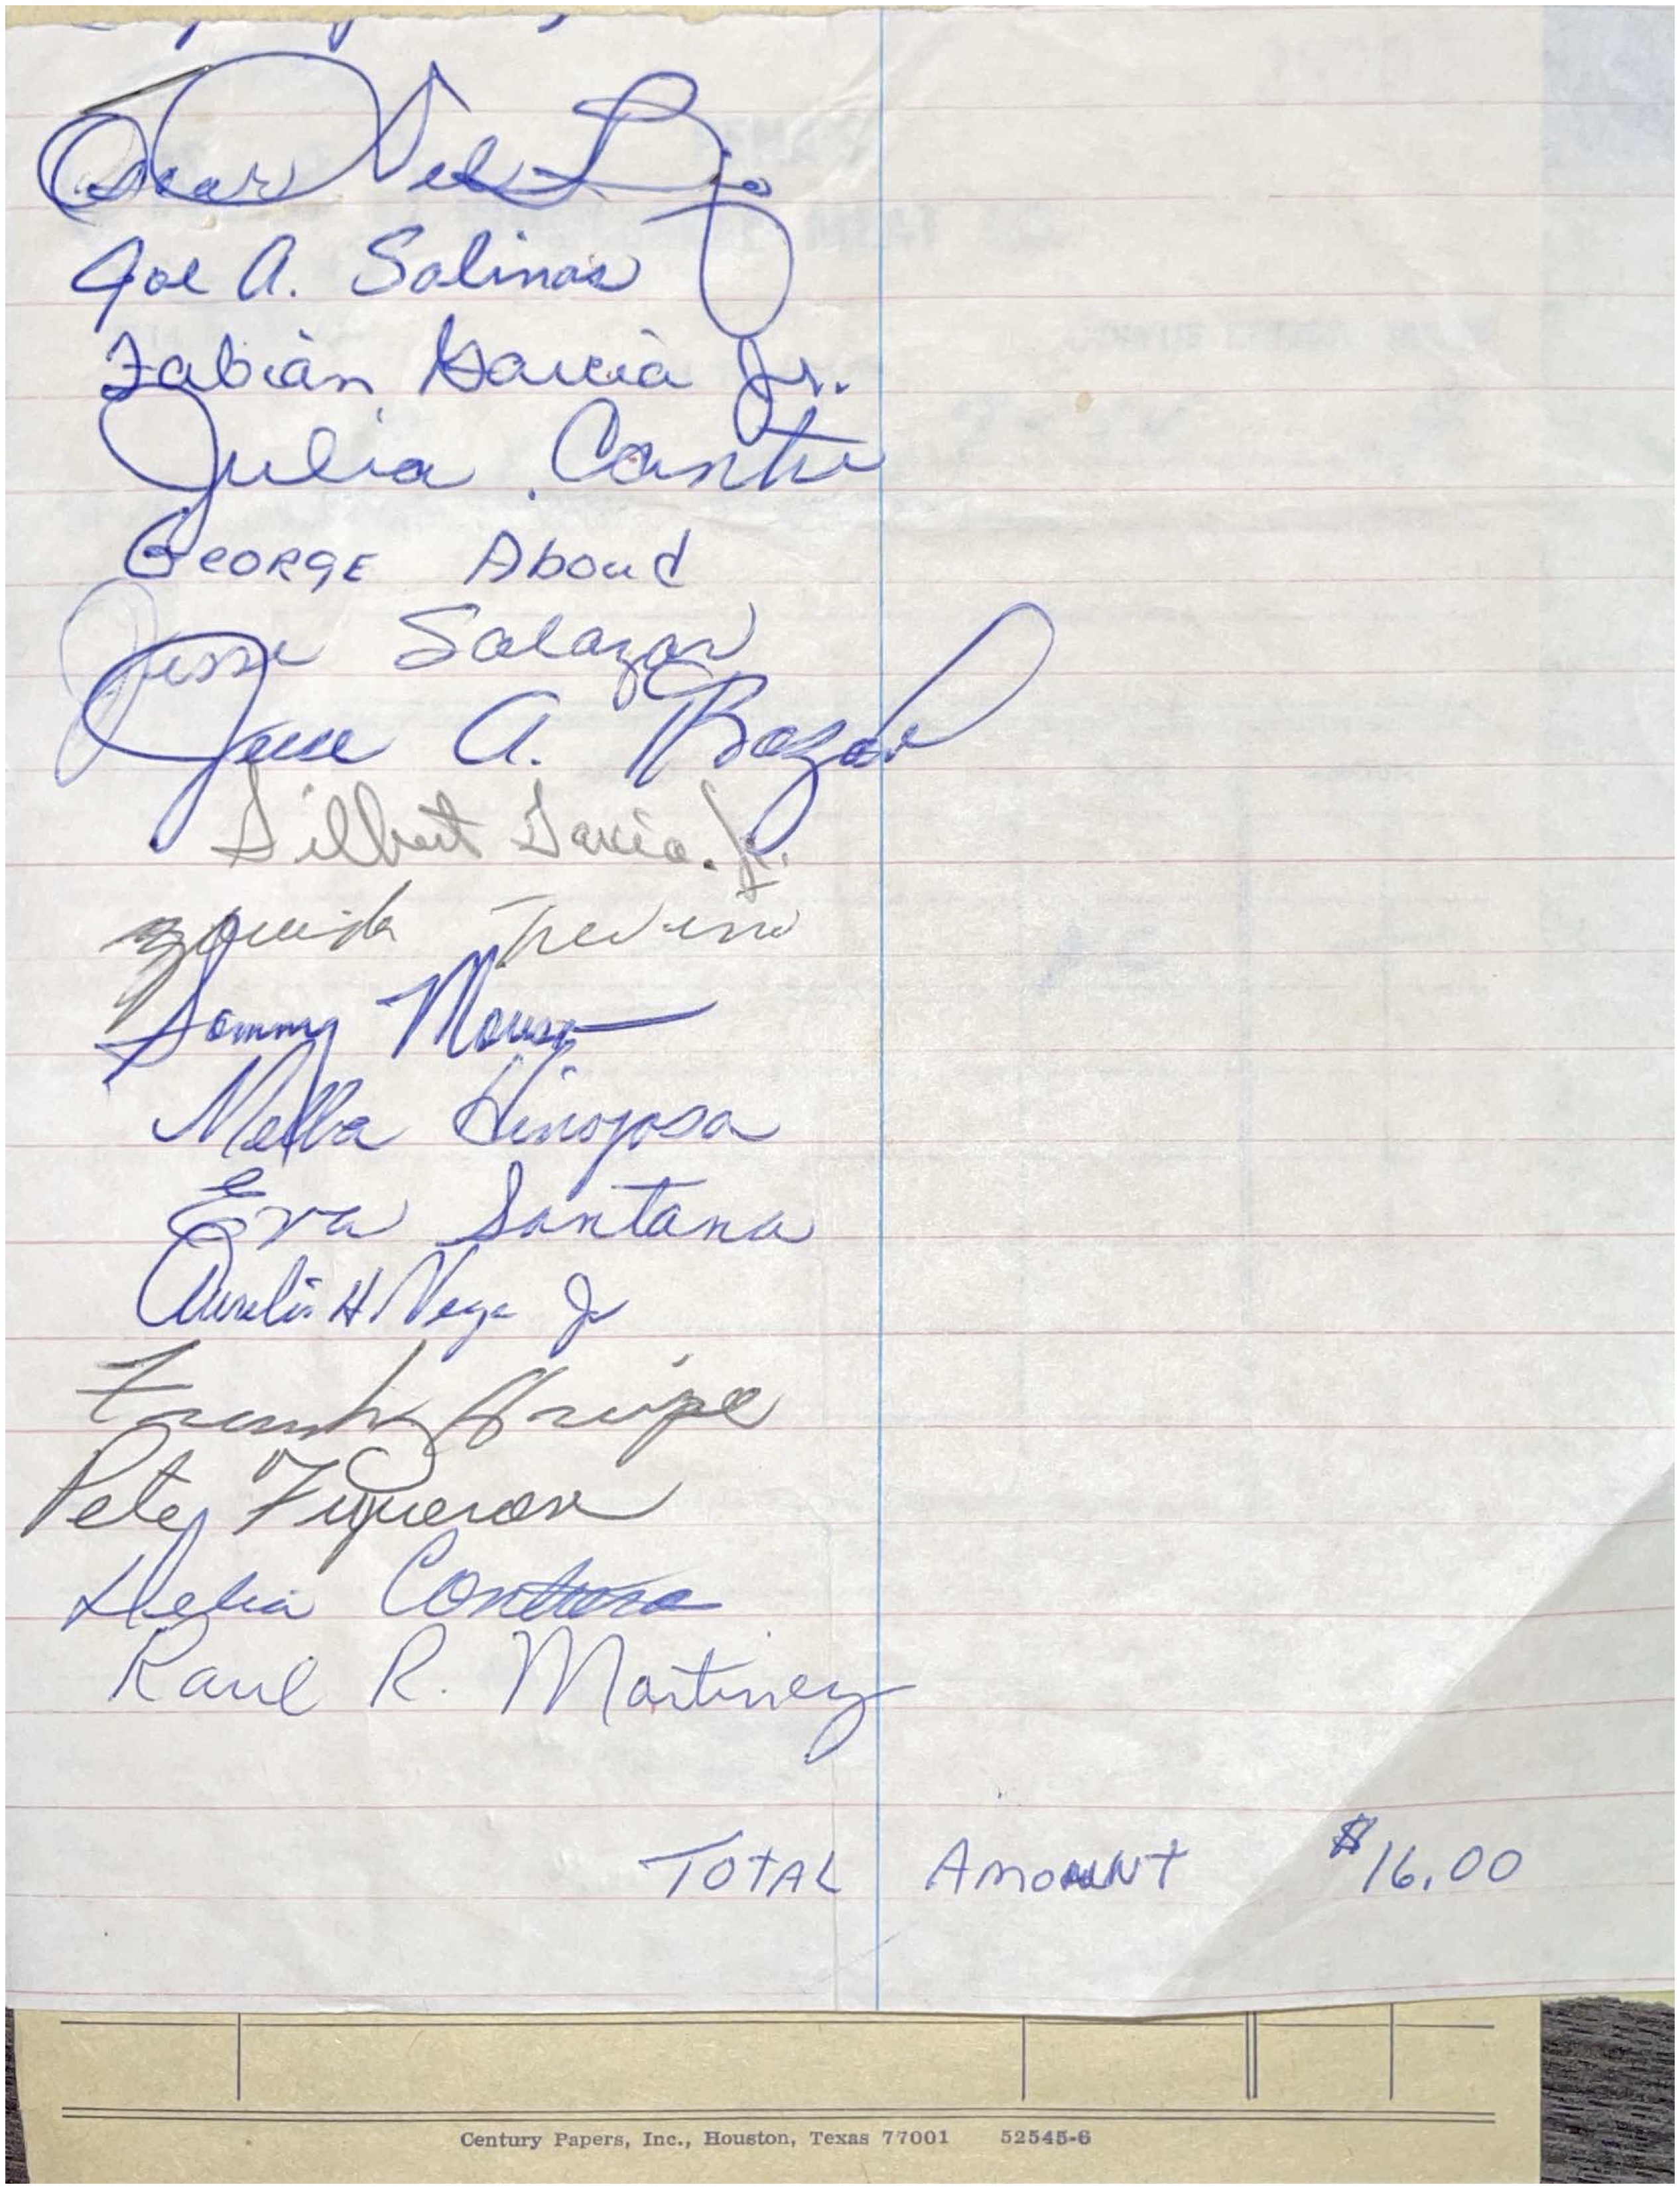 Oscar
Joe A. Salinas
Fabián Garcia Jr.
Julia Cantu
GEORGE Aboud
Jesse Salazar
A.
Gilbert Garcia. Jr.
Trevino
Melba Hinojosa
Eva Santana
Aurelio H Vega Jr
Frank
Pete Figueroa
Delia
Raul R. Martinez
TOTAL AMOUNT $16.00
Century Papers, Inc., Houston, Texas 77001 52545-6